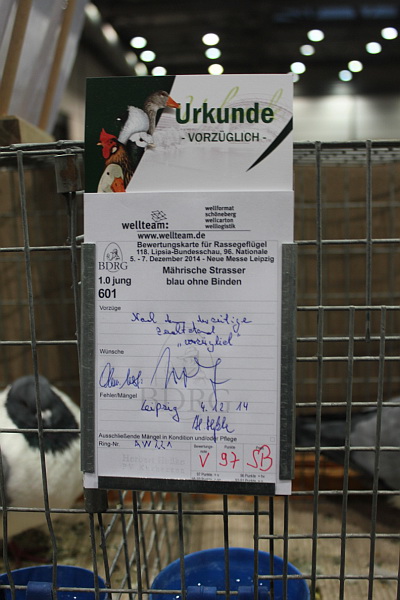 Urkunde
- VORZÜGLICH -
wellteam:
wellformat
schöneberg
wellcarton
welllogistik
www.wellteam.de
Bewertungskarte für Rassegeflügel
118. Lipsia-Bundesschau, 96. Nationale
5. - 7. Dezember 2014 - Neue Messe Leipzig
BDRG
Mährische Strasser
1.0 jung
blau ohne Binden
601
Vorzüge
Nach dem derzeitige
"vorzüglich"
Wünsche
Fehler/Mängel
BDRG
Leipzig 4.12.14
Ausschließende Mängel in Kondition und/oder Pflege
Ring-Nr.
V 97 SB